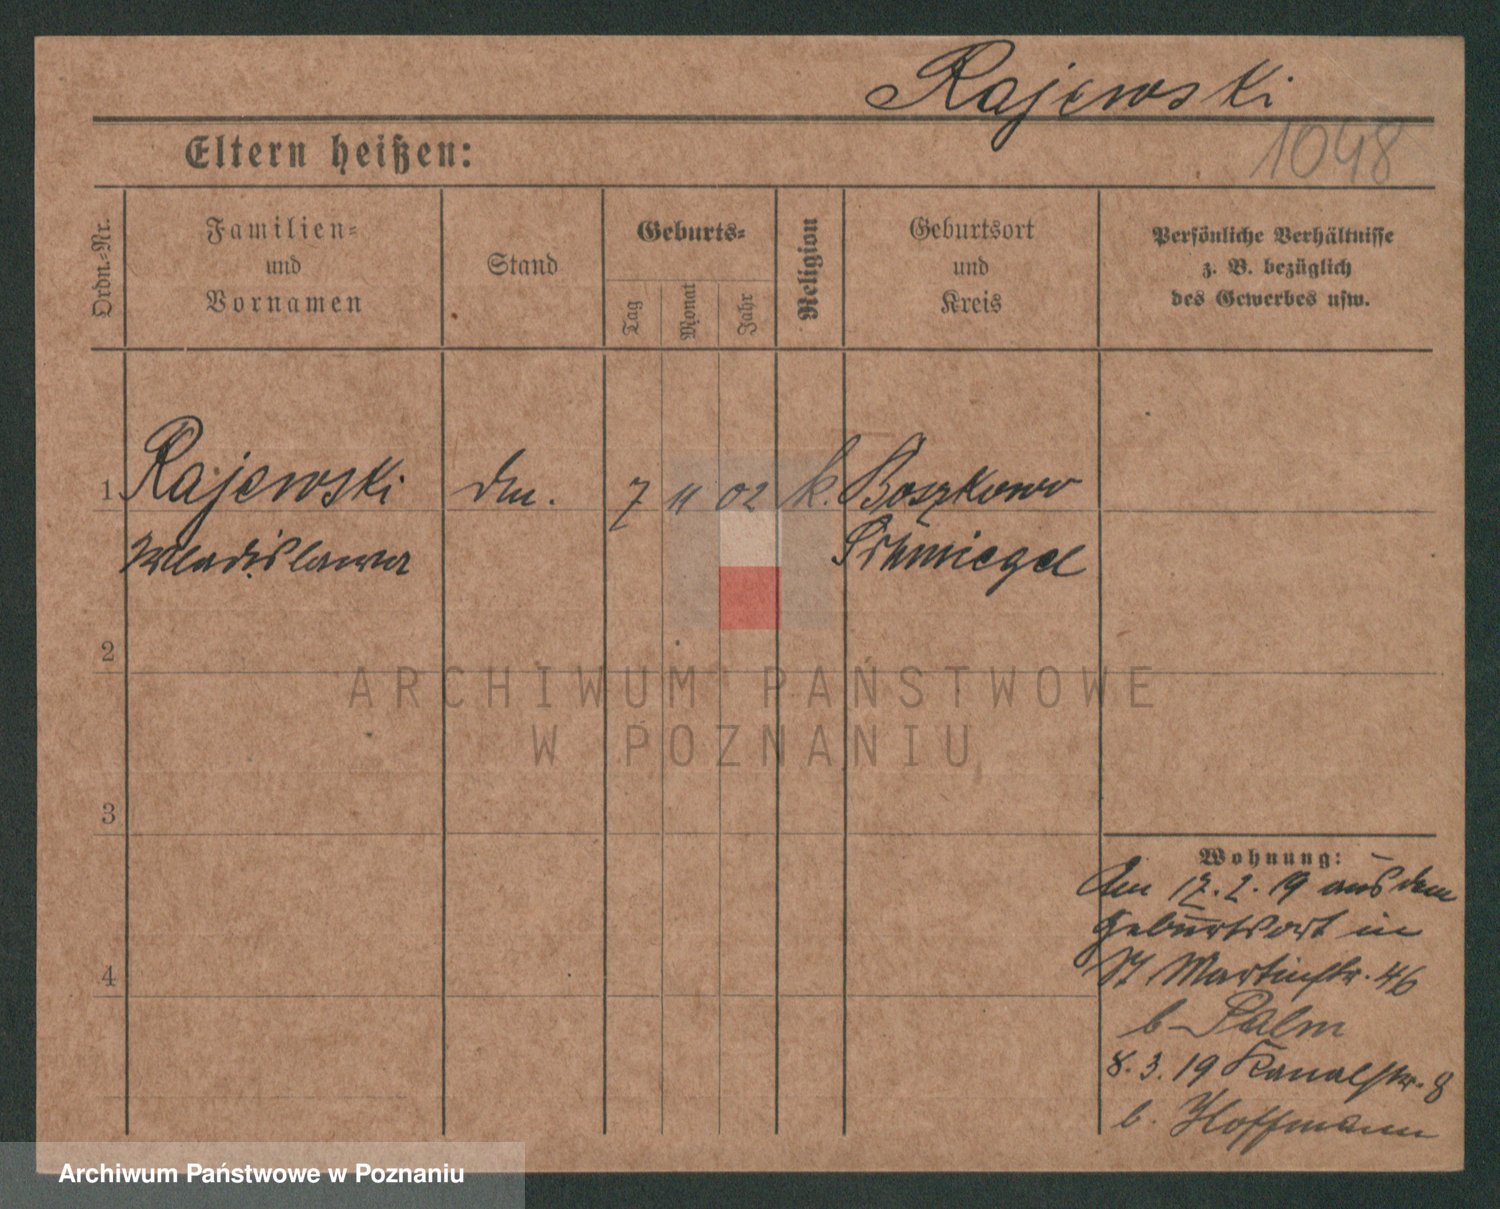 Rajewski
1048
Eltern heißen:
Ordn.-Nr.
Familien-
und
Vornamen
Stand
Geburts-
Tag
Monat
Jahr
Religion
Geburtsort
und
Kreis
Persönliche Verhältnisse
z. B. bezüglich
des Gewerbes usw.
1 Rajewski 7 11 02 k. Boszkowo
Wladislawa Schmiegel
2
ARCHIWUM PAŃSTWOWE
W POZNANIU
3
Wohnung:
Am 17. 2. 19 aus dem
Geburtsort in
St Martinstr. 46
4
b Palm
8. 3. 19 Kanalstr. 8
b. Hoffmann
Archiwum Państwowe w Poznaniu